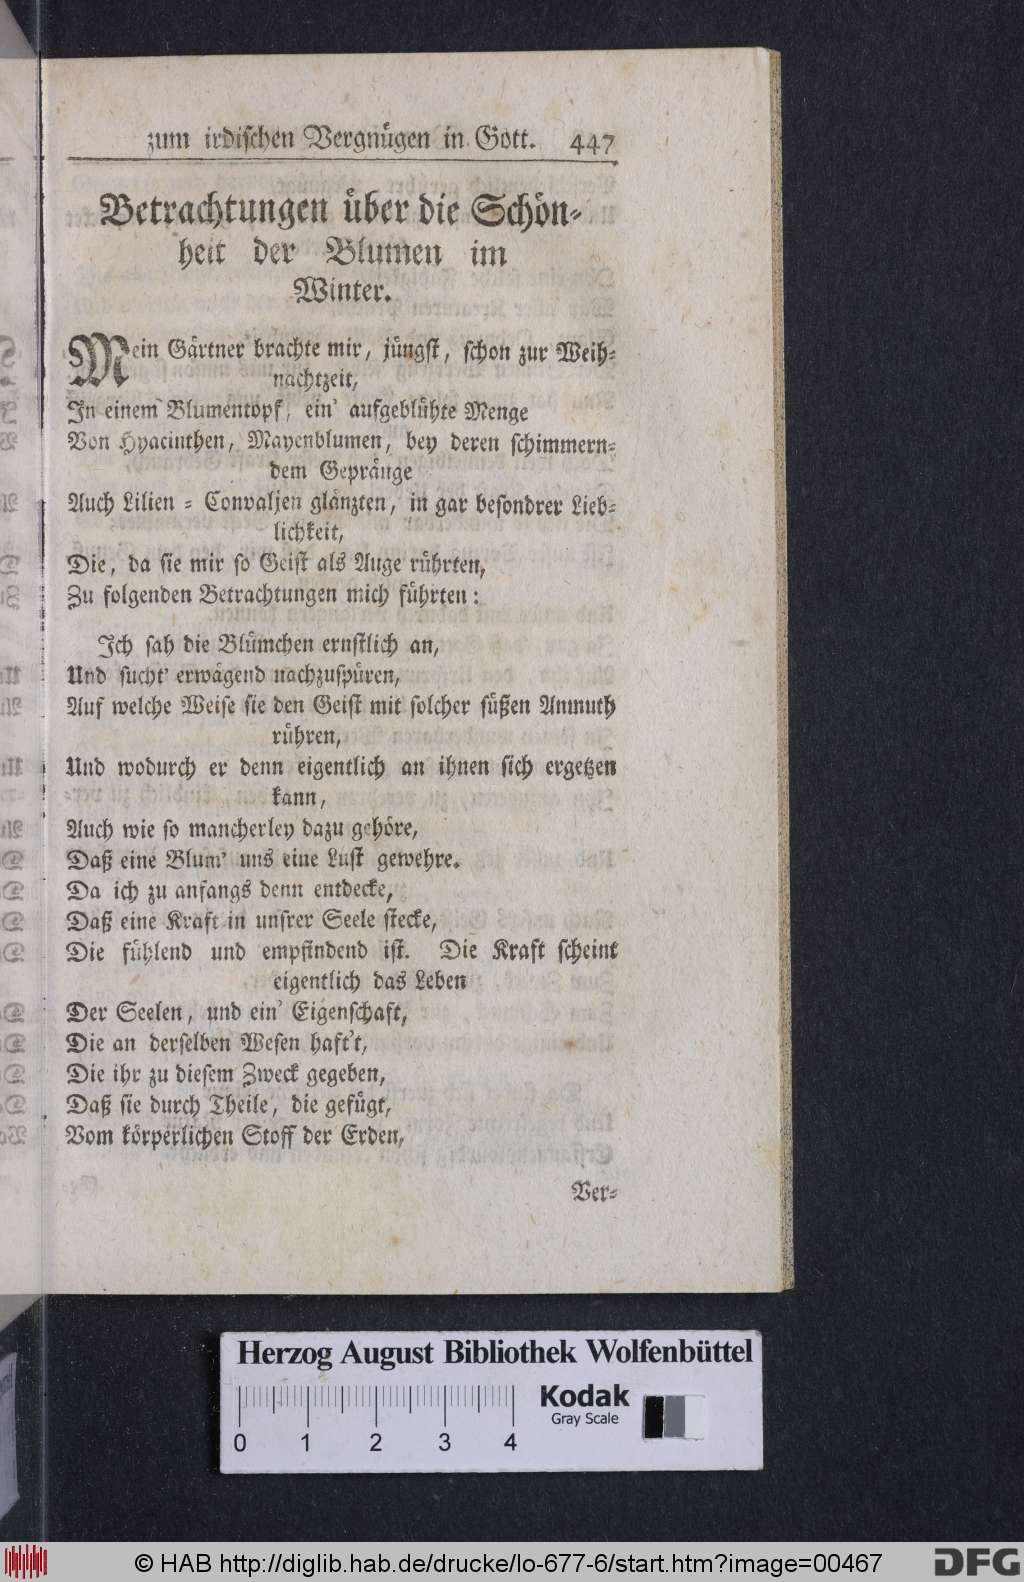 zum irdischen Vergnügen in Gott. 447
Betrachtungen über die Schön-
heit der Blumen im
Winter.
Mein Gärtner brachte mir, jüngst, schon zur Weih-
nachtzeit,
In einem Blumentopf, ein' aufgeblühte Menge
Von Hyacinthen, Mayenblumen, bey deren schimmern-
dem Gepränge
Auch Lilien-Convaljen glänzten, in gar besondrer Lieb-
lichkeit,
Die, da sie mir so Geist als Auge rührten,
Zu folgenden Betrachtungen mich führten:
Ich sah die Blümchen ernstlich an,
Und sucht' erwägend nachzuspüren,
Auf welche Weise sie den Geist mit solcher süßen Anmuth
rühren,
Und wodurch er denn eigentlich an ihnen sich ergetzen
kann,
Auch wie so mancherley dazu gehöre,
Daß eine Blum' uns eine Lust gewehre.
Da ich zu anfangs denn entdecke,
Daß eine Kraft in unsrer Seele stecke,
Die fühlend und empfindend ist. Die Kraft scheint
eigentlich das Leben
Der Seelen, und ein' Eigenschaft,
Die an derselben Wesen haft't,
Die ihr zu diesem Zweck gegeben,
Daß sie durch Theile, die gefügt,
Vom körperlichen Stoff der Erden,
Ver-
Herzog August Bibliothek Wolfenbüttel
Kodak
Gray Scale
0 1 2 3 4
© HAB http://diglib.hab.de/drucke/lo-677-6/start.htm?image=00467
DFG